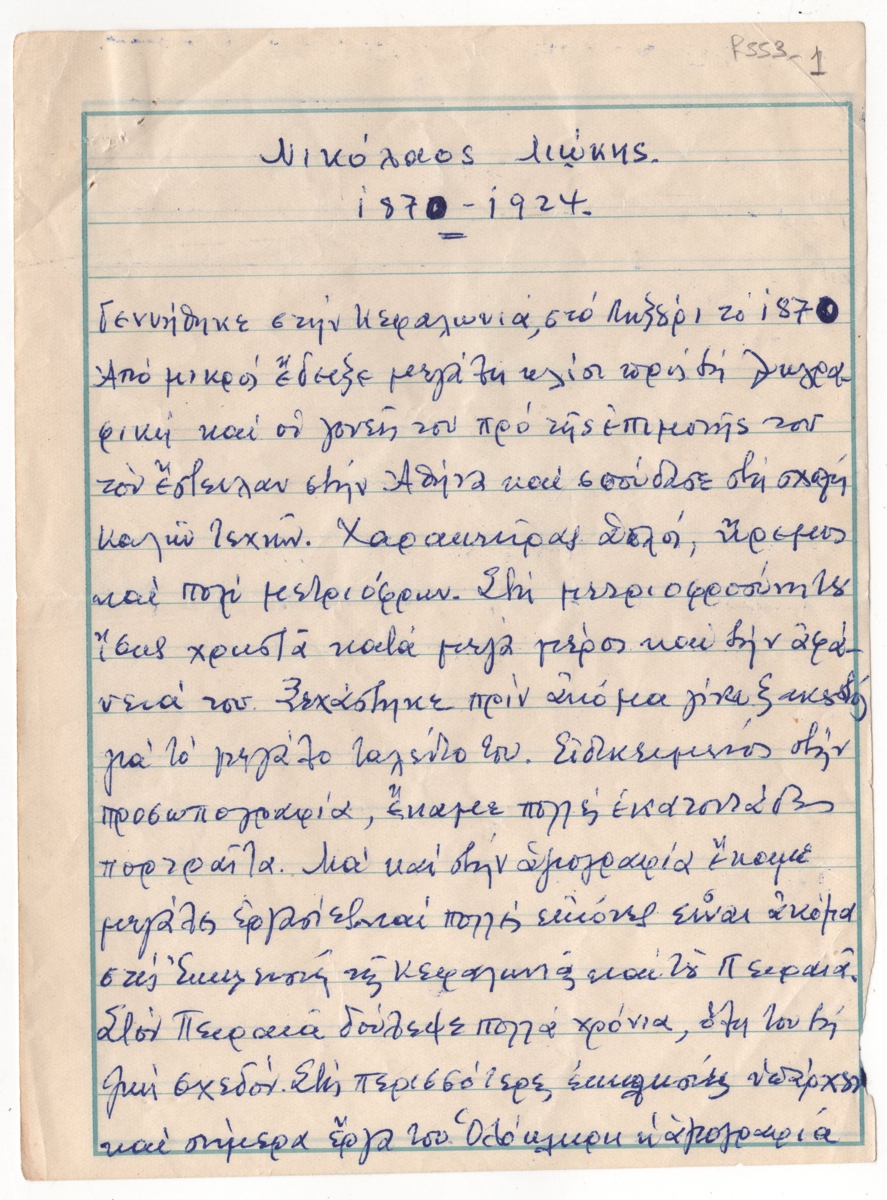 R553-1
Νικόλαος Λιώκης.
1870-1924.
Γεννήθηκε στήν Κεφαλωνιά, στό Ληξούρι τό 1870
Ἀπό μικρός ἔδειξε μεγάλη κλίσι πρός τή ζωγρα-
φική καί οἱ γονεῖς του πρό τῆς ἐπιμονῆς του
τόν ἔστειλαν στήν Ἀθήνα καί σπούδασε στή σχολή
Καλῶν Τεχνῶν. Χαρακτήρας ἁπλός, ἤρεμος
καί πολύ μετριόφρων. Στή μετριοφροσύνη του
ἴσως χρωστᾶ κατά μέγα μέρος καί τήν ἀφά-
νειά του. Ξεχάστηκε πρίν ἀκόμα γίνει ξακουστός
γιά τό μεγάλο ταλέντο του. Εἰδικευμένος στήν
προσωπογραφία, ἔκαμε πολλές ἑκατοντάδες
πορτραῖτα. Μά καί στήν ἁγιογραφία ἔκαμε
μεγάλες ἐργασίες καί πολλές εἰκόνες εἶναι ἀκόμα
στίς Ἐκκλησιές τῆς Κεφαλωνιᾶς καί τοῦ Πειραιᾶ.
Στόν Πειραιᾶ δούλεψε πολλά χρόνια, ὅλη του τή
ζωή σχεδόν. Στίς περισσότερες ἐκκλησιές ὑπάρχουν
καί σήμερα ἔργα του. Ὁλόκληρη ἡ ἁγιογραφία